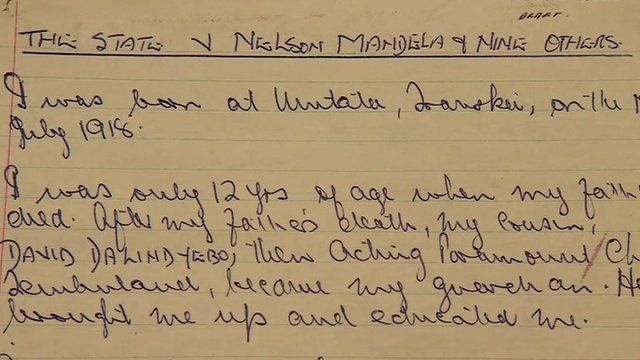 DRAFT.
THE STATE V NELSON MANDELA & NINE OTHERS.
I was born at Umtata, Transkei, on the 1
July 1918.
I was only 12 yrs of age when my fath
died. After my father's death, my cousin,
DAVID DALINDYEBO, then Acting Paramount Ch
Tembuland, became my guardian. He
brought me up and educated me.